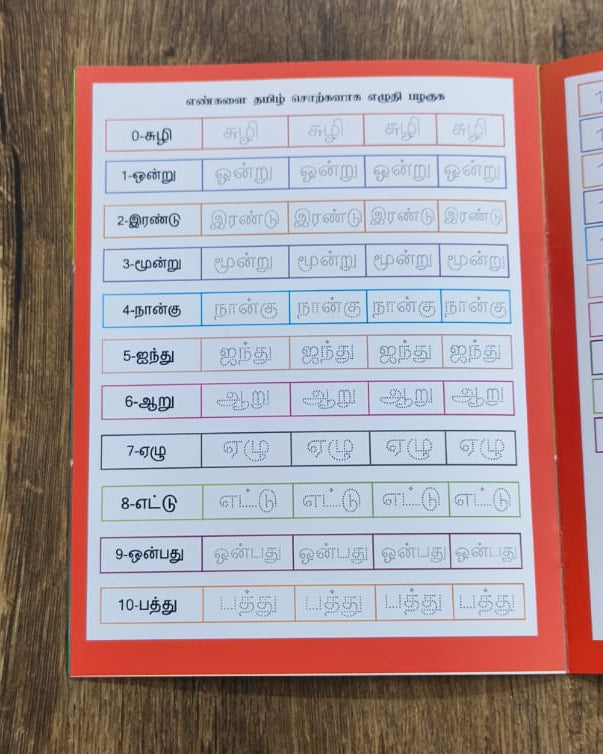 எண்களை தமிழ் சொற்களாக எழுதி பழகுக
0-சுழி சுழி சுழி சுழி சுழி
1-ஒன்று ஒன்று ஒன்று ஒன்று ஒன்று
2-இரண்டு இரண்டு இரண்டு இரண்டு இரண்டு
3-மூன்று மூன்று மூன்று மூன்று மூன்று
4-நான்கு நான்கு நான்கு நான்கு நான்கு
5-ஐந்து ஐந்து ஐந்து ஐந்து ஐந்து
6-ஆறு ஆறு ஆறு ஆறு ஆறு
7-ஏழு ஏழு ஏழு ஏழு ஏழு
8-எட்டு எட்டு எட்டு எட்டு எட்டு
9-ஒன்பது ஒன்பது ஒன்பது ஒன்பது ஒன்பது
10-பத்து பத்து பத்து பத்து பத்து